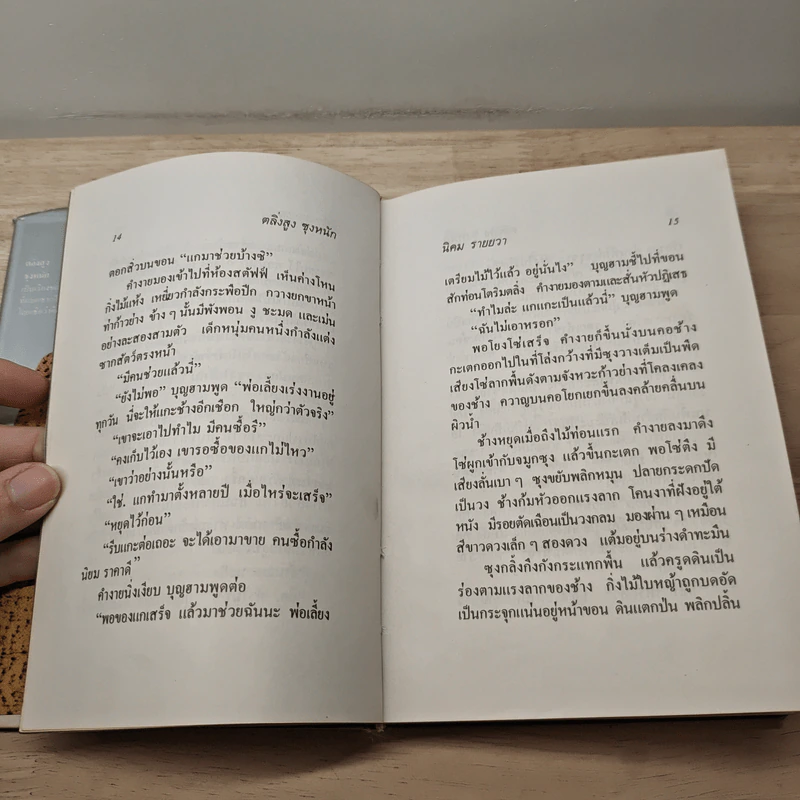 14
ตลิ่งสูง ซุงหนัก
ตอกสิ่วบนขอน “แกมาช่วยบ้างซิ”
คำงายมองเข้าไปที่ห้องสตัฟฟ์ เห็นค่างโหน
กิ่งไม้แห้ง เหยี่ยวกำลังกระพือปีก กวางยกขาหน้า
ทำก้าวย่าง ข้าง ๆ นั้นมีพังพอน งู ชะมด และเม่น
อย่างละสองสามตัว เด็กหนุ่มคนหนึ่งกำลังแต่ง
ซากสัตว์ตรงหน้า
“มีคนช่วยแล้วนี่”
“ยังไม่พอ” บุญฮามพูด “พ่อเลี้ยงเร่งงานอยู่
ทุกวัน นี่จะให้แกะช้างอีกเชือก ใหญ่กว่าตัวจริง”
“เขาจะเอาไปทำไม มีคนซื้อรึ”
“คงเก็บไว้เอง เขารอซื้อของแกไม่ไหว”
“เขาว่าอย่างนั้นหรือ”
“ใช่. แกทำมาตั้งหลายปี เมื่อไหร่จะเสร็จ”
“หยุดไว้ก่อน”
“รีบแกะต่อเถอะ จะได้เอามาขาย คนซื้อกำลัง
นิยม ราคาดี”
คำงายนิ่งเงียบ บุญฮามพูดต่อ
“พอของแกเสร็จ แล้วมาช่วยฉันนะ พ่อเลี้ยง
นิคม รายยวา
15
เตรียมไม้ไว้แล้ว อยู่นั่นไง” บุญฮามชี้ไปที่ขอน
สักท่อนโตริมตลิ่ง คำงายมองตามและสั่นหัวปฏิเสธ
“ทำไมล่ะ แกแกะเป็นแล้วนี่” บุญฮามพูด
“ฉันไม่เอาหรอก”
พอโยงโซ่เสร็จ คำงายก็ขึ้นนั่งบนคอช้าง
กะเตกออกไปในที่โล่งกว้างที่มีซุงวางเต็มเป็นพืด
เสียงโซ่ลากพื้นดังตามจังหวะก้าวอย่างที่โคลงเคลง
ของช้าง ควาญบนคอโยกเยกขึ้นลงคล้ายคลื่นบน
ผิวน้ำ
ช้างหยุดเมื่อถึงไม้ท่อนแรก คำงายลงมาดึง
โซ่ผูกเข้ากับจมูกซุง แล้วขึ้นกะเตก พอโซ่ตึง มี
เสียงลั่นเบา ๆ ซุงขยับพลิกหมุน ปลายกระดกปัด
เป็นวง ช้างก้มหัวออกแรงลาก โคนงาที่ฝังอยู่ใต้
หนัง มีรอยตัดเฉือนเป็นวงกลม มองผ่าน ๆ เหมือน
สีขาวดวงเล็ก ๆ สองดวง แต้มอยู่บนร่างดำทะมึน
ซุงกลิ้งกึงกังกระแทกพื้น แล้วครูดดินเป็น
ร่องตามแรงลากของช้าง กิ่งไม้ใบหญ้าถูกบดอัด
เป็นกระจุกแน่นอยู่หน้าขอน ดินแตกป่น พลิกปลิ้น